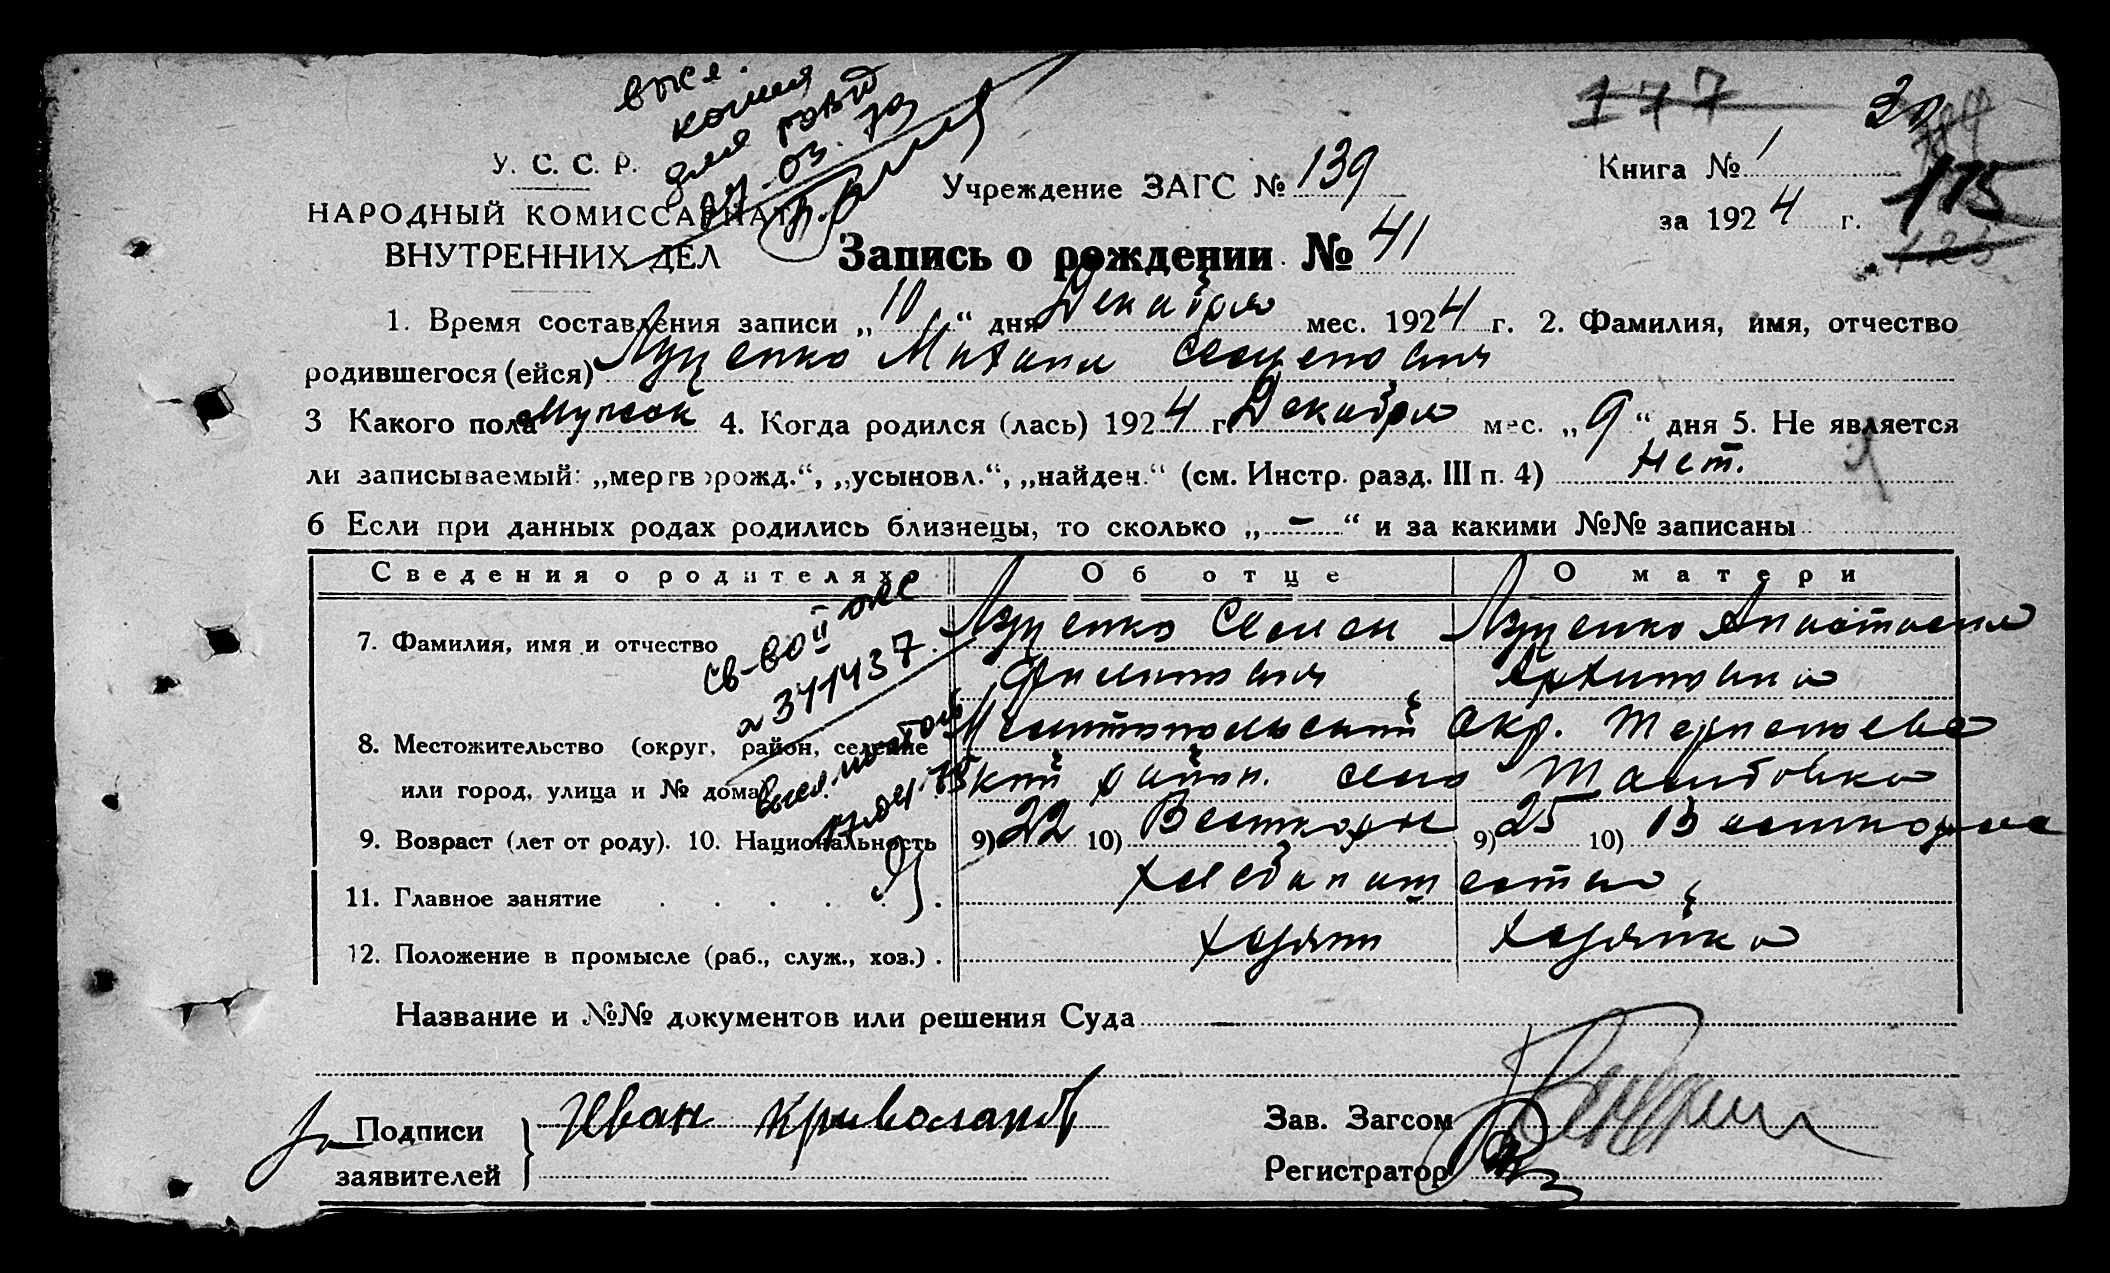 177
30
выс.
копия
для
27.03.79
У. С. С. Р.
НАРОДНЫЙ КОМИССАРИАТ
ВНУТРЕННИХ ДЕЛ
Учреждение ЗАГС № 139
Книга № 1
за 1924 г.
175
Запись о рождении № 41
1. Время составления записи „10“ дня Декабря мес. 1924 г. 2. Фамилия, имя, отчество
родившегося (ейся) Луценко Михаил Семенович
3 Какого пола мужск 4. Когда родился (лась) 1924 г. Декабря мес. „9“ дня 5. Не является
ли записываемый: „мертворожд.“, „усыновл.“, „найден.“ (см. Инстр. разд. III п. 4) нет.
6 Если при данных родах родились близнецы, то сколько „–“ и за какими №№ записаны
Сведения о родителях Об отце О матери
7. Фамилия, имя и отчество Луценко Семен Луценко Анастасия
Филипович Архиповна
св-во II
371437
8. Местожительство (округ, район, селение Мелитопольский Окр. Терпеньев
или город, улица и № дома) ский район. село
17.04.75
9. Возраст (лет от роду). 10. Национальность 9) 22 10) 9) 25 10)
11. Главное занятие хлебопашество
12. Положение в промысле (раб., служ., хоз.) хозяин хозяйка
Название и №№ документов или решения Суда
Подписи
заявителей
Иван Криволапов
Зав. Загсом
Регистратор